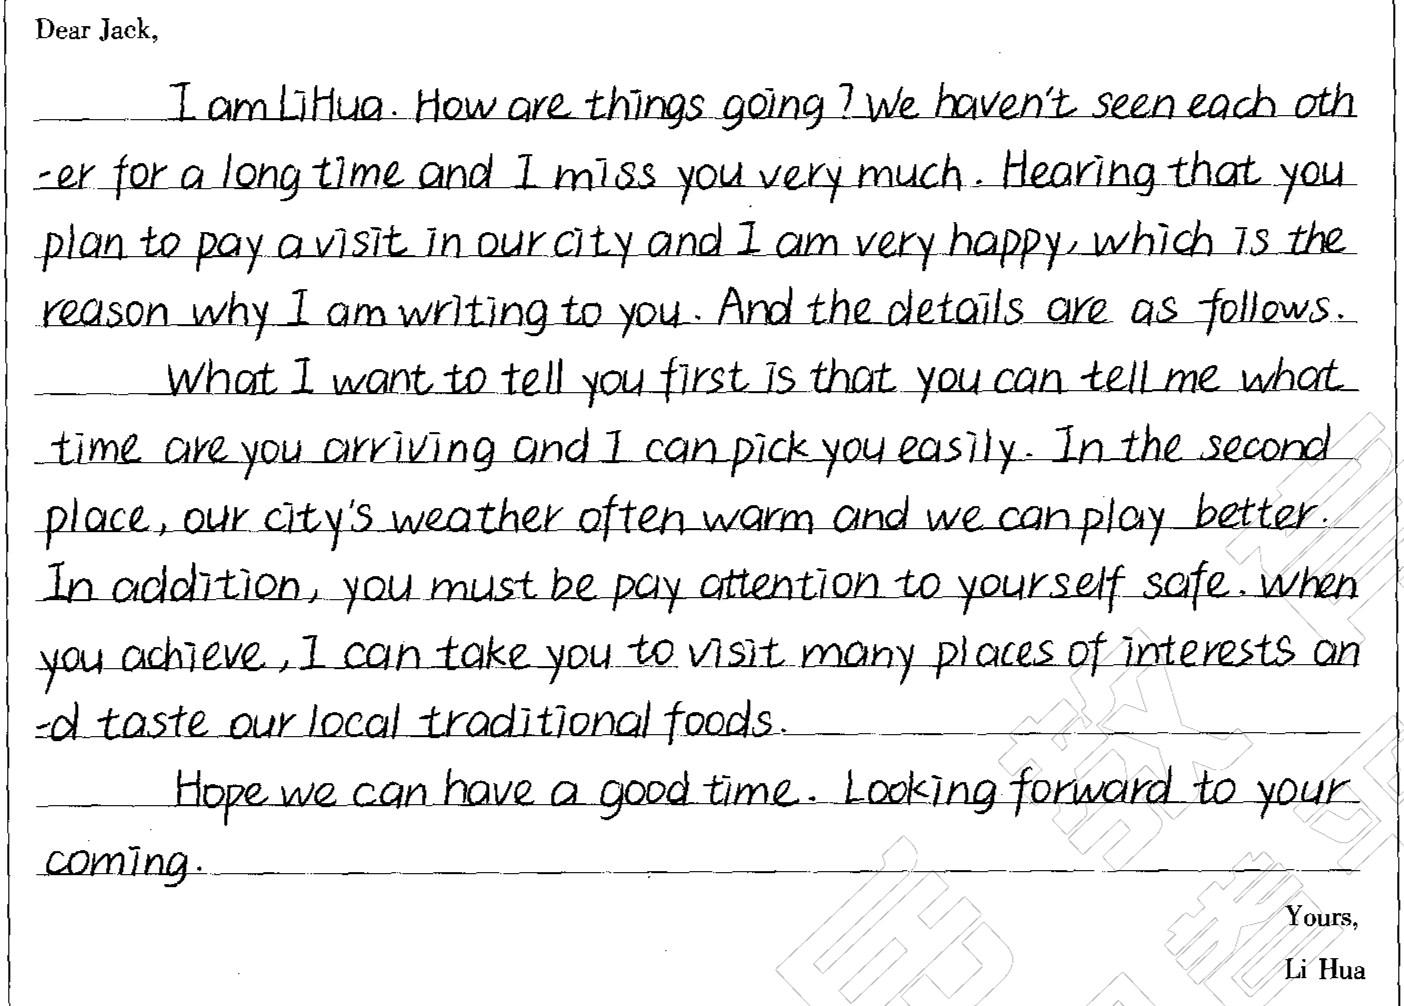 Dear Jack,
I am LiHua. How are things going? We haven't seen each oth
-er for a long time and I miss you very much. Hearing that you
plan to pay a visit in our city and I am very happy, which is the
reason why I am writing to you. And the details are as follows.
What I want to tell you first is that you can tell me what
time are you arriving and I can pick you easily. In the second
place, our city's weather often warm and we can play better.
In addition, you must be pay attention to yourself safe. When
you achieve, I can take you to visit many places of interests an
-d taste our local traditional foods.
Hope we can have a good time. Looking forward to your
coming.
Yours,
Li Hua